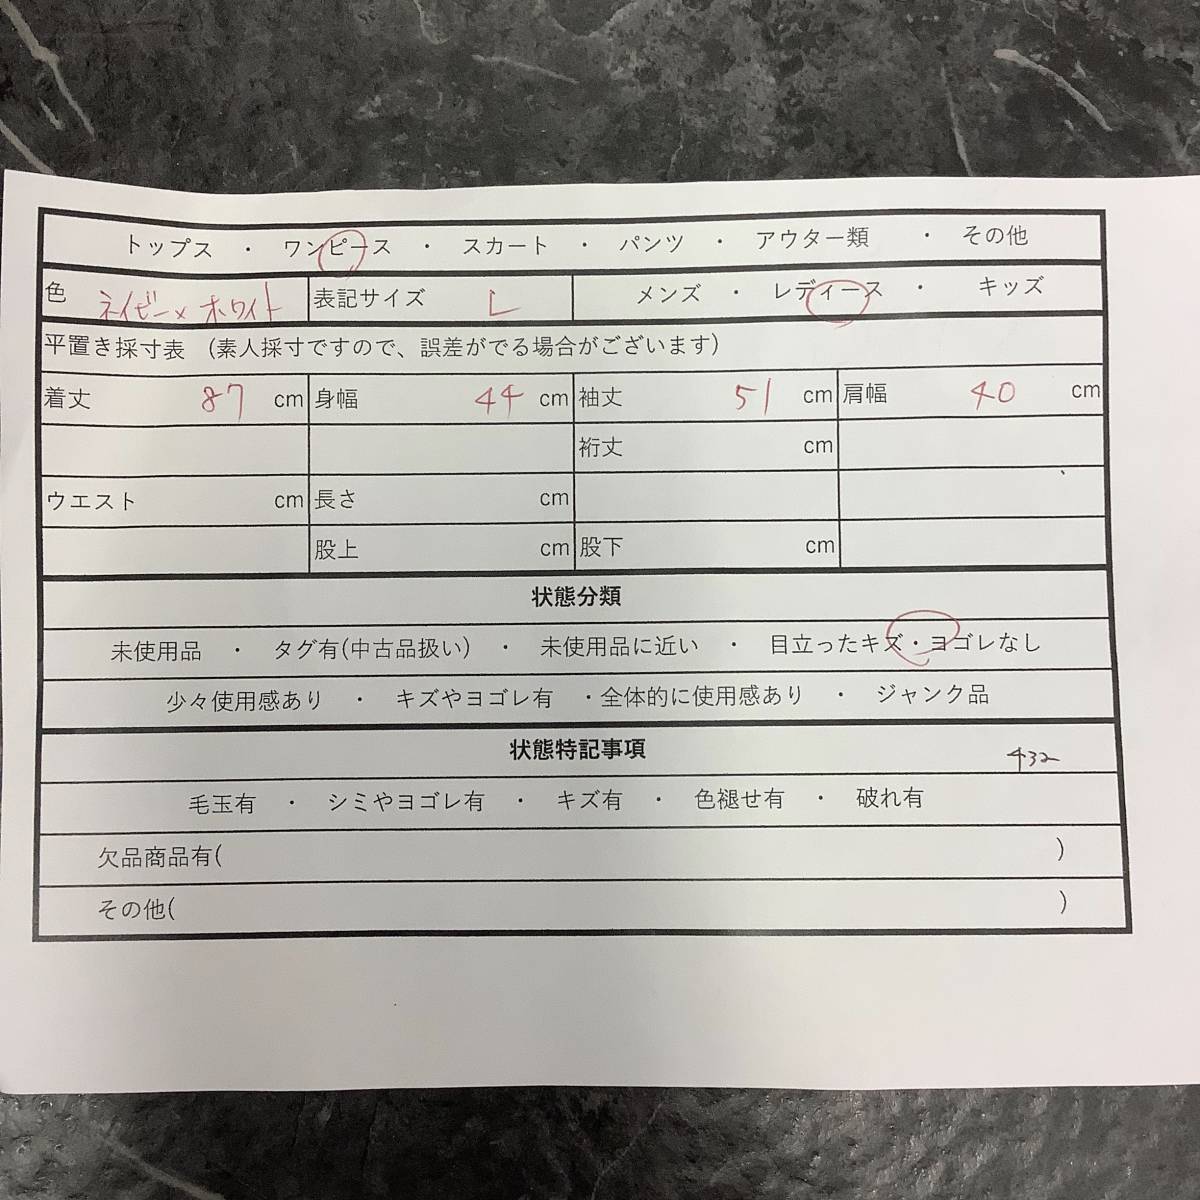 トップス ・ ワンピース ・ スカート ・ パンツ ・ アウター類 ・ その他
色 ネイビー×ホワイト 表記サイズ L メンズ ・ レディース ・ キッズ
平置き採寸表 (素人採寸ですので、誤差がでる場合がございます)
着丈 87 cm 身幅 44 cm 袖丈 51 cm 肩幅 40 cm
裄丈 cm
ウエスト cm 長さ cm
股上 cm 股下 cm
状態分類
未使用品 ・ タグ有(中古品扱い) ・ 未使用品に近い ・ 目立ったキズ・ヨゴレなし
少々使用感あり ・ キズやヨゴレ有 ・全体的に使用感あり ・ ジャンク品
状態特記事項 432
毛玉有 ・ シミやヨゴレ有 ・ キズ有 ・ 色褪せ有 ・ 破れ有
欠品商品有( )
その他( )